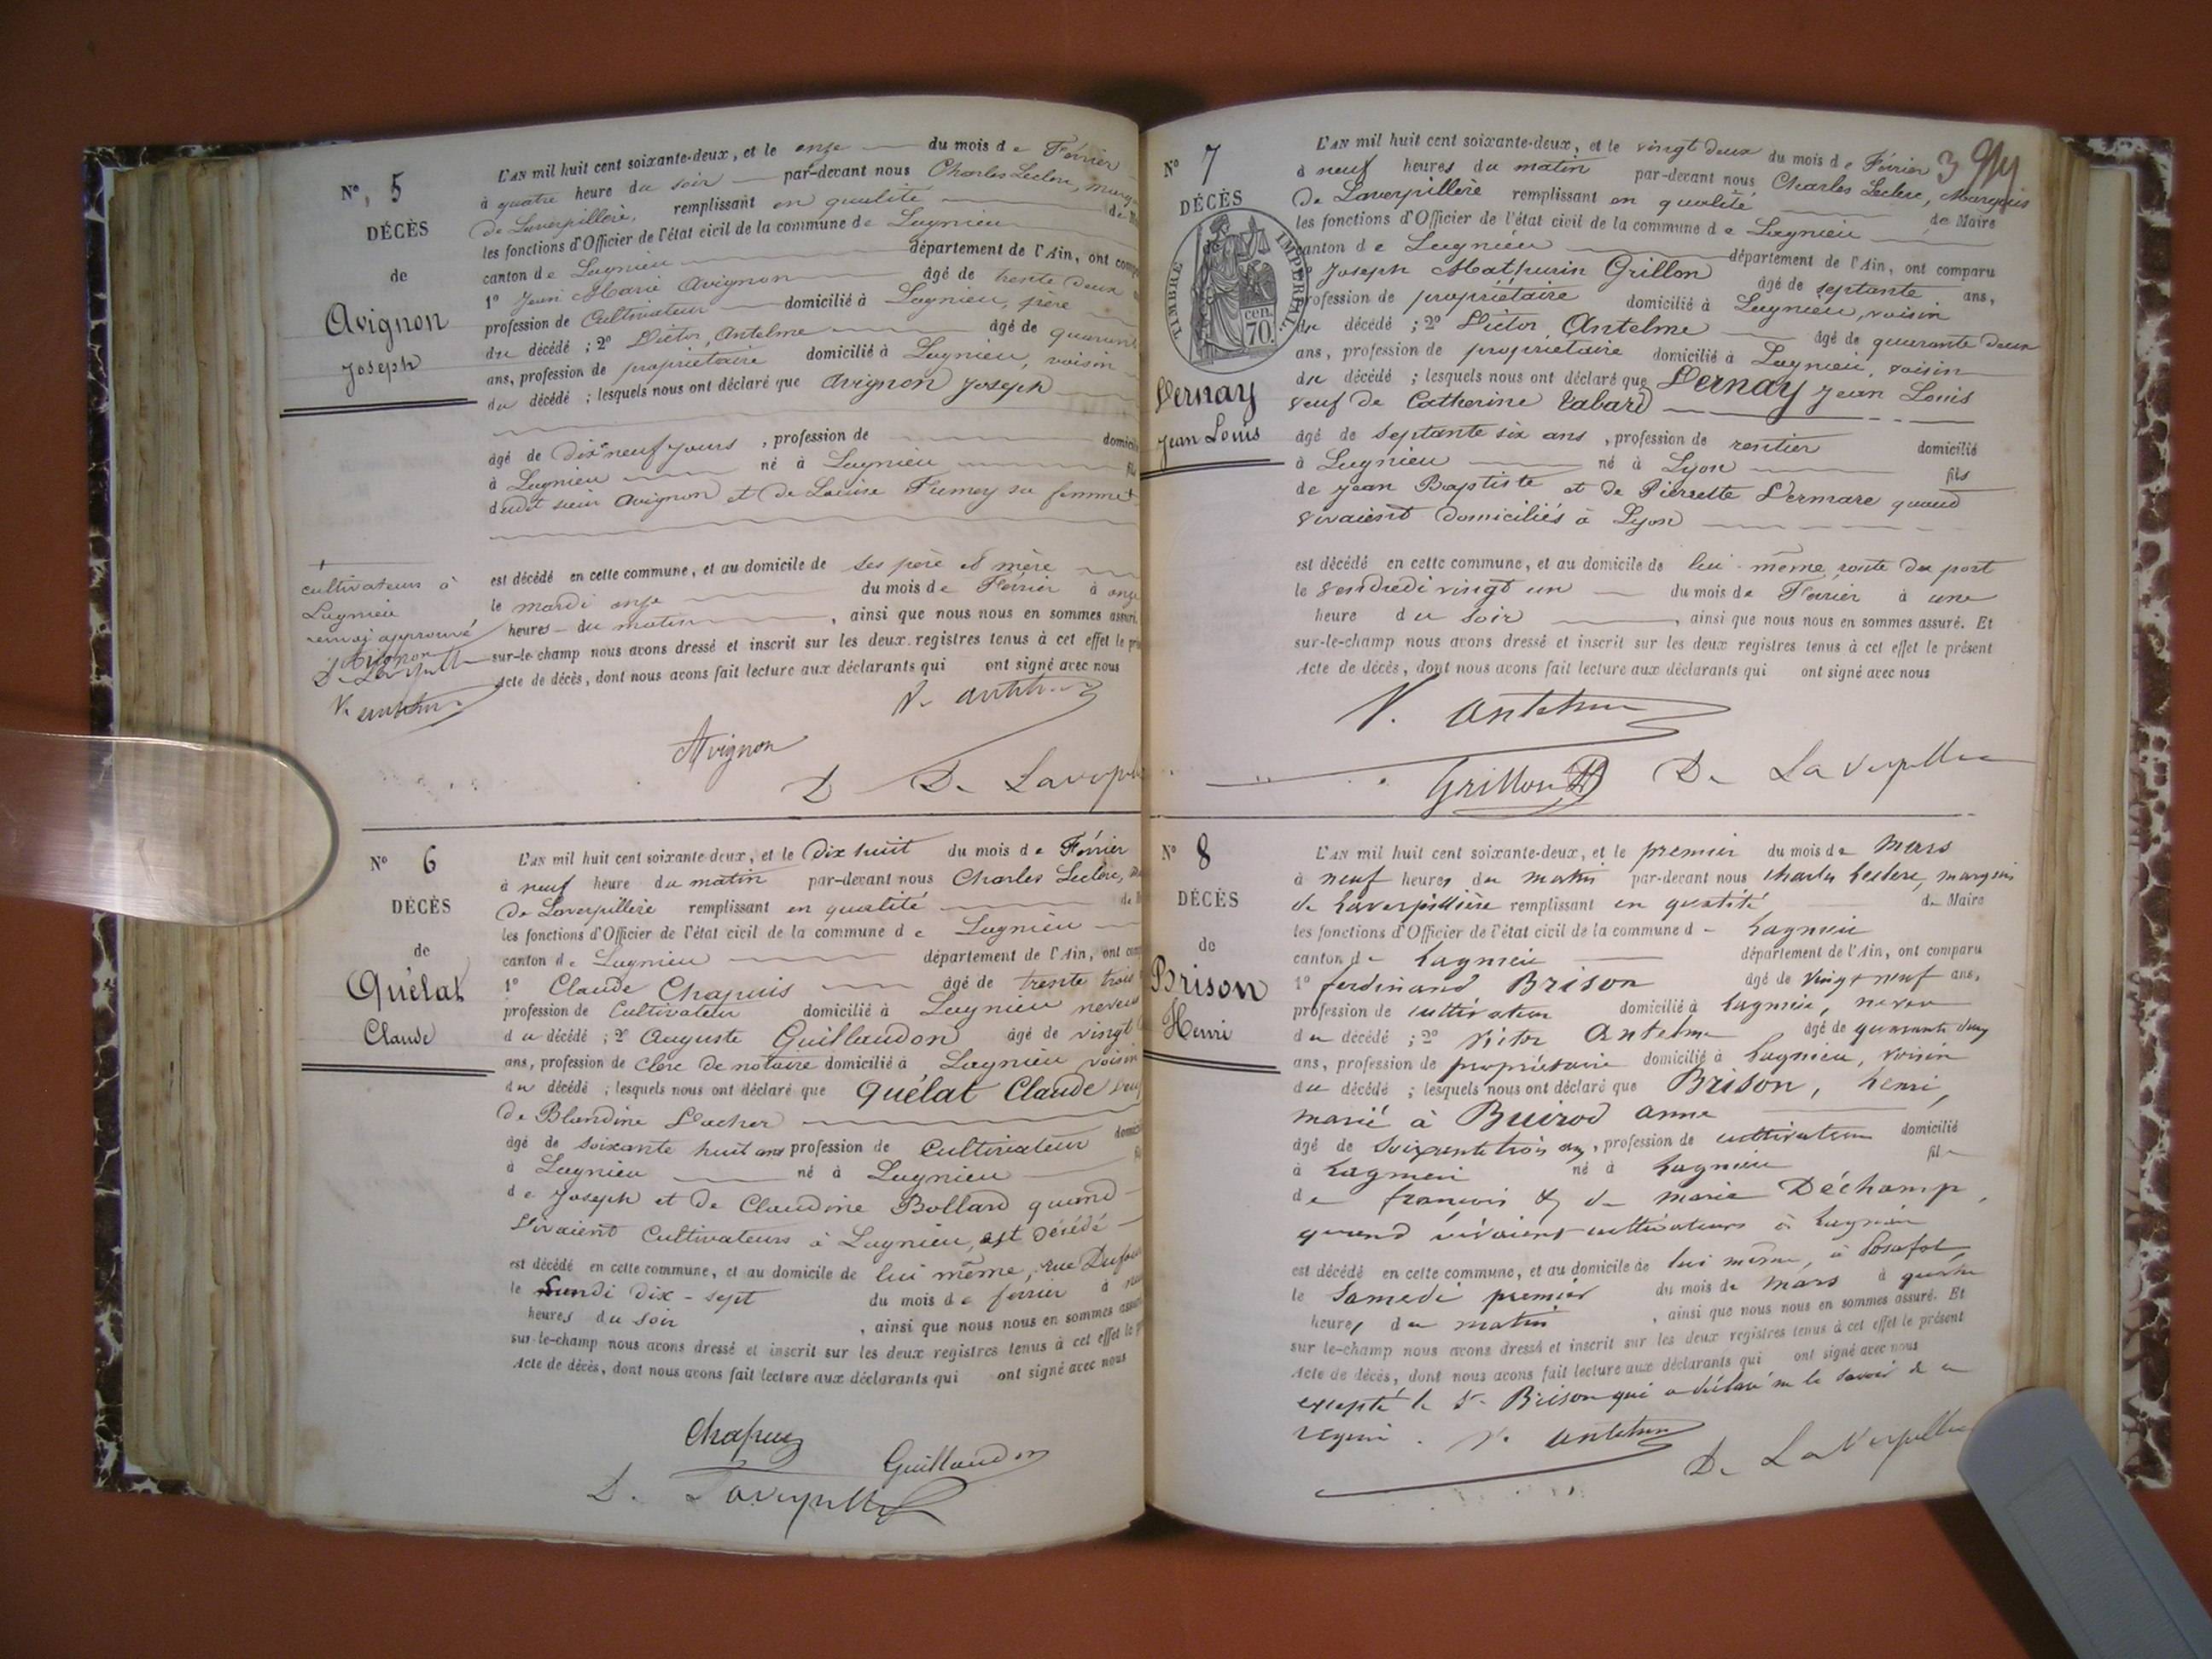 N°, 5
DÉCÈS
de
Avignon
Joseph
L'AN mil huit cent soixante-deux, et le onze du mois de Février
à quatre heure du soir par-devant nous Charles Leclerc,
de Laverpillière, remplissant en qualité
les fonctions d'Officier de l'état civil de la commune de Lagnieu
canton de Lagnieu département de l'Ain, ont
1° Jean Marie Avignon âgé de trente deux
profession de Cultivateur domicilié à Lagnieu, père
du décédé ; 2° Victor, Antelme âgé de
ans, profession de propriétaire domicilié à Lagnieu, voisin
du décédé ; lesquels nous ont déclaré que Avignon Joseph
âgé de dix neuf jours , profession de
à Lagnieu né à Lagnieu
dudit sieur Avignon et de Louise Fumey sa femme +
est décédé en cette commune, et au domicile de ses père et mère
le mardi onze du mois de Février à onze
heures du matin , ainsi que nous nous en sommes assuré.
sur-le-champ nous avons dressé et inscrit sur les deux registres tenus à cet effet le
Acte de décès, dont nous avons fait lecture aux déclarants qui ont signé avec nous
+
cultivateurs à
Lagnieu
renvoi approuvé
Avignon
V. Antelme
V. Antelme
Avignon
D De
N° 6
DÉCÈS
de
Quélat
Claude
L'AN mil huit cent soixante-deux, et le Dix huit du mois de Février
à neuf heure du matin par-devant nous Charles Leclerc,
De Laverpillière remplissant en qualité
les fonctions d'Officier de l'état civil de la commune de Lagnieu
canton de Lagnieu département de l'Ain, ont
1° Claude Chapuis âgé de trente trois
profession de Cultivateur domicilié à Lagnieu neveu
du décédé ; 2° Auguste Guillaudon âgé de vingt
ans, profession de Clerc de notaire domicilié à Lagnieu voisin
du décédé ; lesquels nous ont déclaré que Quélat Claude
de Blandine Vacher
âgé de soixante huit ans profession de Cultivateur
à Lagnieu né à Lagnieu
de Joseph et de Claudine Bollard quand
vivaient Cultivateurs à Lagnieu, est décédé
est décédé en cette commune, et au domicile de lui même, rue
le Lundi dix-sept du mois de février à
heures du soir , ainsi que nous nous en sommes
sur-le-champ nous avons dressé et inscrit sur les deux registres tenus à cet effet le
Acte de décès, dont nous avons fait lecture aux déclarants qui ont signé avec nous
Chapuis
Guillaudon
D. Laverpillière
3
N° 7
DÉCÈS
de
TIMBRE IMPÉRIAL
70 cen.
Vernay
Jean Louis
L'AN mil huit cent soixante-deux, et le vingt deux du mois de Février
à neuf heures du matin par-devant nous Charles Leclerc, Marquis
de Laverpillière remplissant en qualité de Maire
les fonctions d'Officier de l'état civil de la commune de Lagnieu
canton de Lagnieu département de l'Ain, ont comparu
Joseph Mathurin Grillon âgé de septante ans,
profession de propriétaire domicilié à Lagnieu, voisin
du décédé ; 2° Victor Antelme âgé de quarante deux
ans, profession de propriétaire domicilié à Lagnieu, voisin
du décédé ; lesquels nous ont déclaré que Vernay Jean Louis
veuf de Catherine Tabard
âgé de septante six ans , profession de rentier domicilié
à Lagnieu né à Lyon fils
de Jean Baptiste et de Pierrette Vermare quand
vivaient domiciliés à Lyon
est décédé en cette commune, et au domicile de lui-même, route du port
le vendredi vingt un du mois de Février à une
heure du soir , ainsi que nous nous en sommes assuré. Et
sur-le-champ nous avons dressé et inscrit sur les deux registres tenus à cet effet le présent
Acte de décès, dont nous avons fait lecture aux déclarants qui ont signé avec nous
V. Antelme
Grillon De Laverpillière
N° 8
DÉCÈS
de
Brison
Henri
L'AN mil huit cent soixante-deux, et le premier du mois de Mars
à neuf heures du matin par-devant nous Charles Leclerc, marquis
de Laverpillière remplissant en qualité de Maire
les fonctions d'Officier de l'état civil de la commune de Lagnieu
canton de Lagnieu département de l'Ain, ont comparu
1° ferdinand Brison âgé de vingt neuf ans,
profession de cultivateur domicilié à Lagnieu, neveu
du décédé ; 2° Victor Antelme âgé de quarante deux
ans, profession de propriétaire domicilié à Lagnieu, voisin
du décédé ; lesquels nous ont déclaré que Brison, henri,
marié à Buirod anne
âgé de soixante trois ans, profession de cultivateur domicilié
à Lagnieu né à Lagnieu fils
de françois & de marie Déchamp,
quand vivaient cultivateurs à Lagnieu
est décédé en cette commune, et au domicile de lui même, à Posafol
le Samedi premier du mois de Mars à quatre
heures du matin , ainsi que nous nous en sommes assuré. Et
sur-le-champ nous avons dressé et inscrit sur les deux registres tenus à cet effet le présent
Acte de décès, dont nous avons fait lecture aux déclarants qui ont signé avec nous
excepté le Sr Brison qui a déclaré ne le savoir de ce
requis. V. Antelme
De Laverpillière